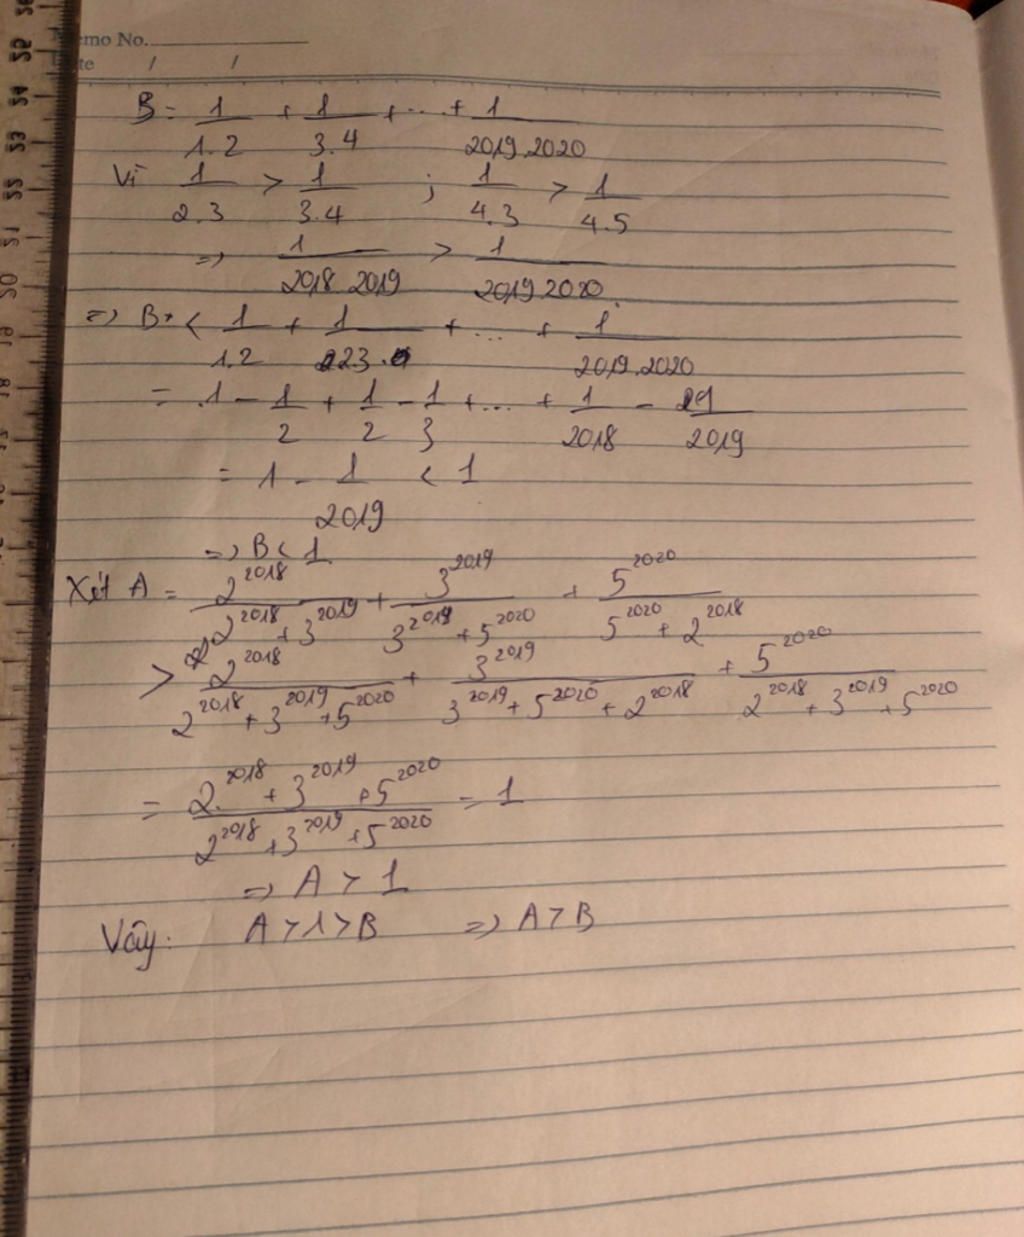 Memo No.
Date / /
B = 1/1.2 + 1/3.4 + ... + 1/2019.2020
Vì 1/2.3 > 1/3.4 ; 1/4.3 > 1/4.5
=> 1/2018.2019 > 1/2019.2020
=> B < 1/1.2 + 1/2.3 + ... + 1/2019.2020
= 1 - 1/2 + 1/2 - 1/3 + ... + 1/2018 - 1/2019
= 1 - 1/2019 < 1
=> B < 1
Xét A = 2^2018/(2^2018 + 3^2019) + 3^2019/(3^2019 + 5^2020) + 5^2020/(5^2020 + 2^2018)
> 2^2018/(2^2018 + 3^2019 + 5^2020) + 3^2019/(3^2019 + 5^2020 + 2^2018) + 5^2020/(2^2018 + 3^2019 + 5^2020)
= (2^2018 + 3^2019 + 5^2020)/(2^2018 + 3^2019 + 5^2020) = 1
=> A > 1
Vậy: A > 1 > B => A > B